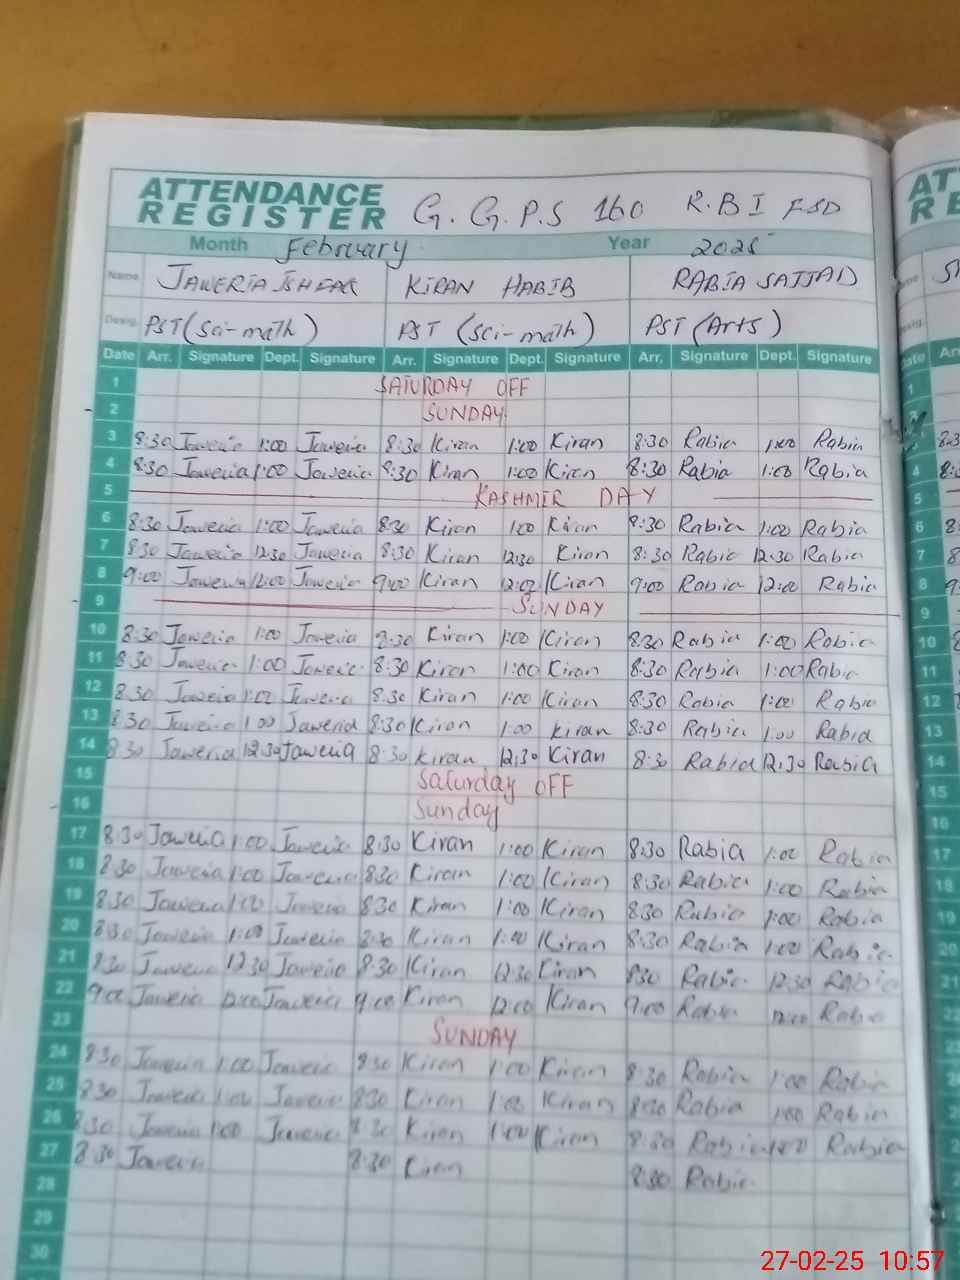 ATTENDANCE REGISTER G.G.P.S 160 R.B I FSD
Month February Year 2025
Name JAWERIA ISHFAQ KIRAN HABIB RABIA SAJJAD
Desig. PST (Sci-math) PST (Sci-math) PST (Arts)
Date Arr. Signature Dept. Signature Arr. Signature Dept. Signature Arr, Signature Dept. Signature
1 SATURDAY OFF
2 SUNDAY
3 8:30 Jaweria 1:00 Jaweria 8:30 Kiran 1:00 Kiran 8:30 Rabia 1:00 Rabia
4 8:30 Jaweria 1:00 Jaweria 8:30 Kiran 1:00 Kiran 8:30 Rabia 1:00 Rabia
5 KASHMIR DAY
6 8:30 Jaweria 1:00 Jaweria 8:30 Kiran 1:00 Kiran 8:30 Rabia 1:00 Rabia
7 8:30 Jaweria 12:30 Jaweria 8:30 Kiran 12:30 Kiran 8:30 Rabia 12:30 Rabia
8 9:00 Jaweria 12:00 Jaweria 9:00 Kiran 12:00 Kiran 9:00 Rabia 12:00 Rabia
9 SUNDAY
10 8:30 Jaweria 1:00 Jaweria 8:30 Kiran 1:00 Kiran 8:30 Rabia 1:00 Rabia
11 8:30 Jaweria 1:00 Jaweria 8:30 Kiran 1:00 Kiran 8:30 Rabia 1:00 Rabia
12 8:30 Jaweria 1:00 Jaweria 8:30 Kiran 1:00 Kiran 8:30 Rabia 1:00 Rabia
13 8:30 Jaweria 1:00 Jaweria 8:30 Kiran 1:00 Kiran 8:30 Rabia 1:00 Rabia
14 8:30 Jaweria 12:30 Jaweria 8:30 Kiran 12:30 Kiran 8:30 Rabia 12:30 Rabia
15 Saturday OFF
16 Sunday
17 8:30 Jaweria 1:00 Jaweria 8:30 Kiran 1:00 Kiran 8:30 Rabia 1:00 Rabia
18 8:30 Jaweria 1:00 Jaweria 8:30 Kiran 1:00 Kiran 8:30 Rabia 1:00 Rabia
19 8:30 Jaweria 1:00 Jaweria 8:30 Kiran 1:00 Kiran 8:30 Rabia 1:00 Rabia
20 8:30 Jaweria 1:00 Jaweria 8:30 Kiran 1:00 Kiran 8:30 Rabia 1:00 Rabia
21 8:30 Jaweria 12:30 Jaweria 8:30 Kiran 12:30 Kiran 8:30 Rabia 12:30 Rabia
22 9:00 Jaweria 12:00 Jaweria 9:00 Kiran 12:00 Kiran 9:00 Rabia 12:00 Rabia
23 SUNDAY
24 8:30 Jaweria 1:00 Jaweria 8:30 Kiran 1:00 Kiran 8:30 Rabia 1:00 Rabia
25 8:30 Jaweria 1:00 Jaweria 8:30 Kiran 1:00 Kiran 8:30 Rabia 1:00 Rabia
26 8:30 Jaweria 1:00 Jaweria 8:30 Kiran 1:00 Kiran 8:30 Rabia 1:00 Rabia
27 8:30 Jaweria 8:30 Kiran 8:30 Rabia
28
29
30
27-02-25 10:57